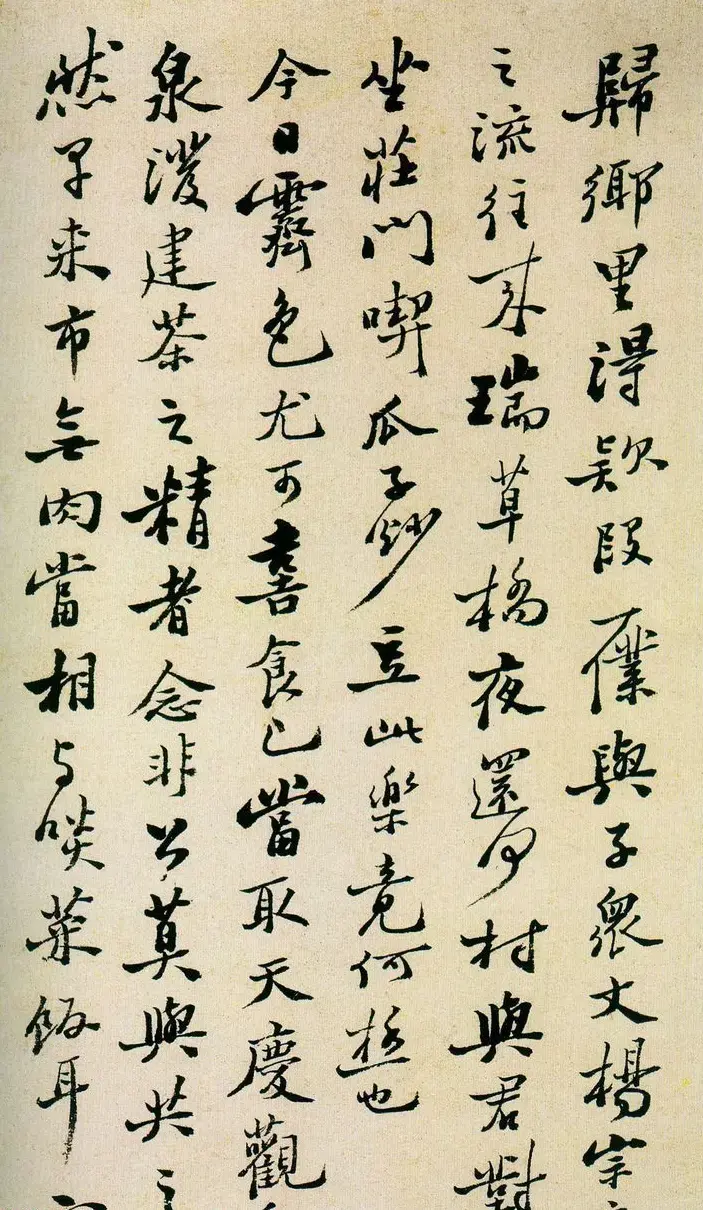 歸鄉里得款段一僕與子衆丈楊宗
之流往來瑞草橋夜還何村與君對
坐莊門喫瓜子炒豆此樂竟何極也
今日霽色尤可喜食已當取天慶觀
泉潑建茶之精者念非公莫與共之
然早來市無肉當相与啖菜飯耳